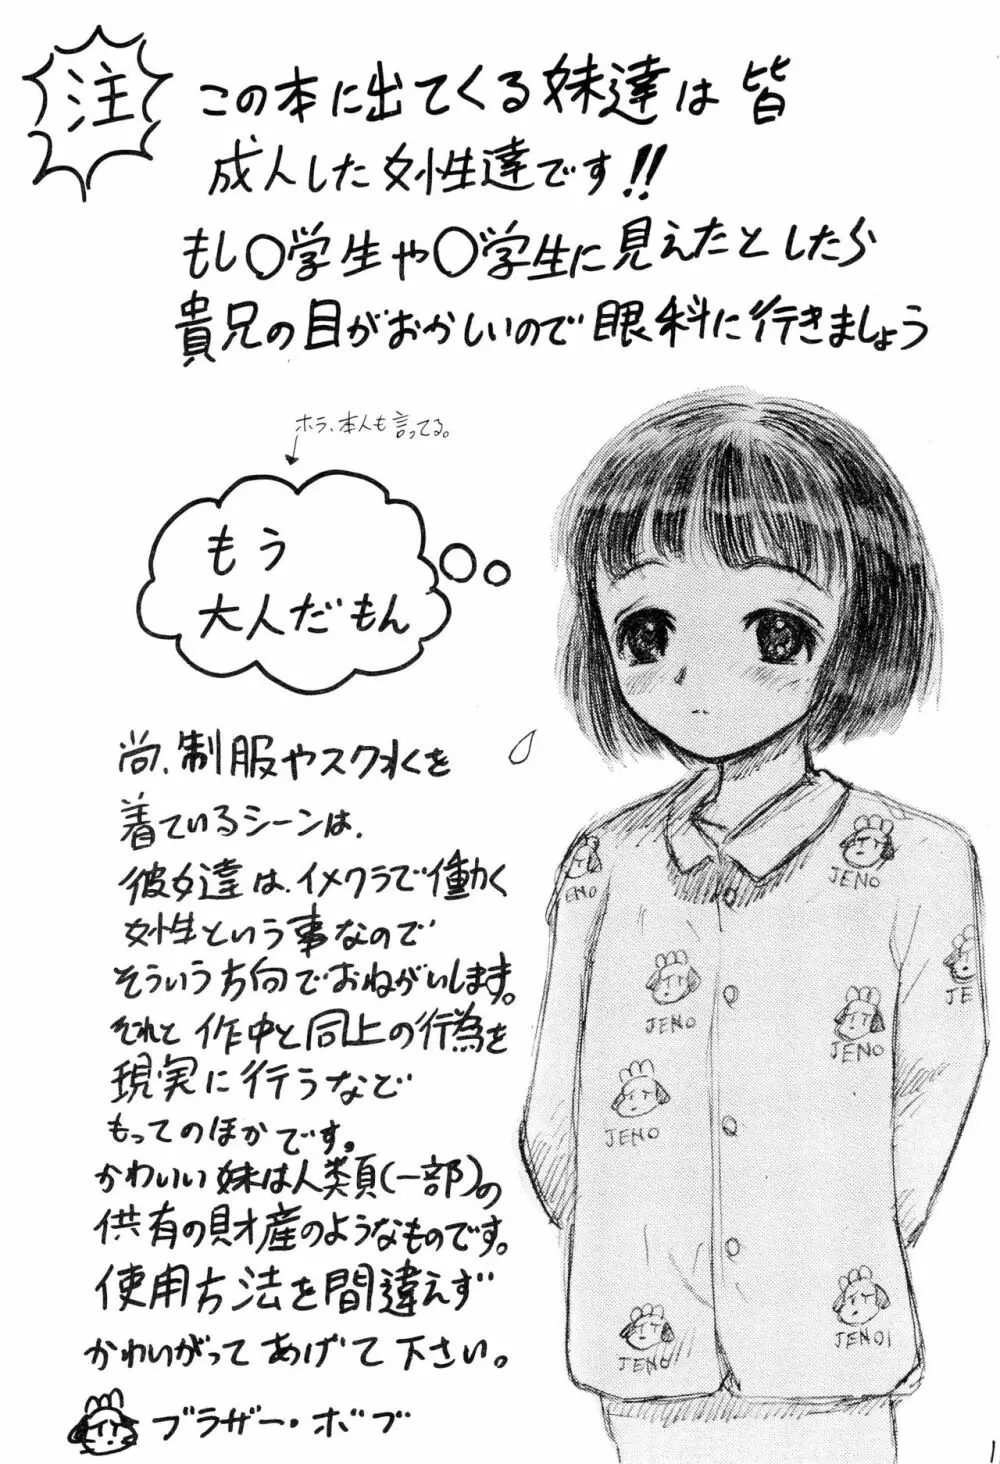 注
この本に出てくる妹達は皆
成人した女性達です!!
もし○学生や○学生に見えたとしたら
貴兄の目がおかしいので眼科に行きましょう
ホラ、本人も言ってる。
もう
大人だもん
尚、制服やスク水を
着ているシーンは、
彼女達は、イメクラで働く
女性という事なので
そういう方向でおねがいします。
それと作中と同上の行為を
現実に行うなど
もってのほかです。
かわいい妹は人類(一部)の
供有の財産のようなものです。
使用方法を間違えず
かわいがってあげて下さい。
ブラザー・ボブ
JENO
ENO
JE
JENO
JENO
JENO
JENO
JENOI
1